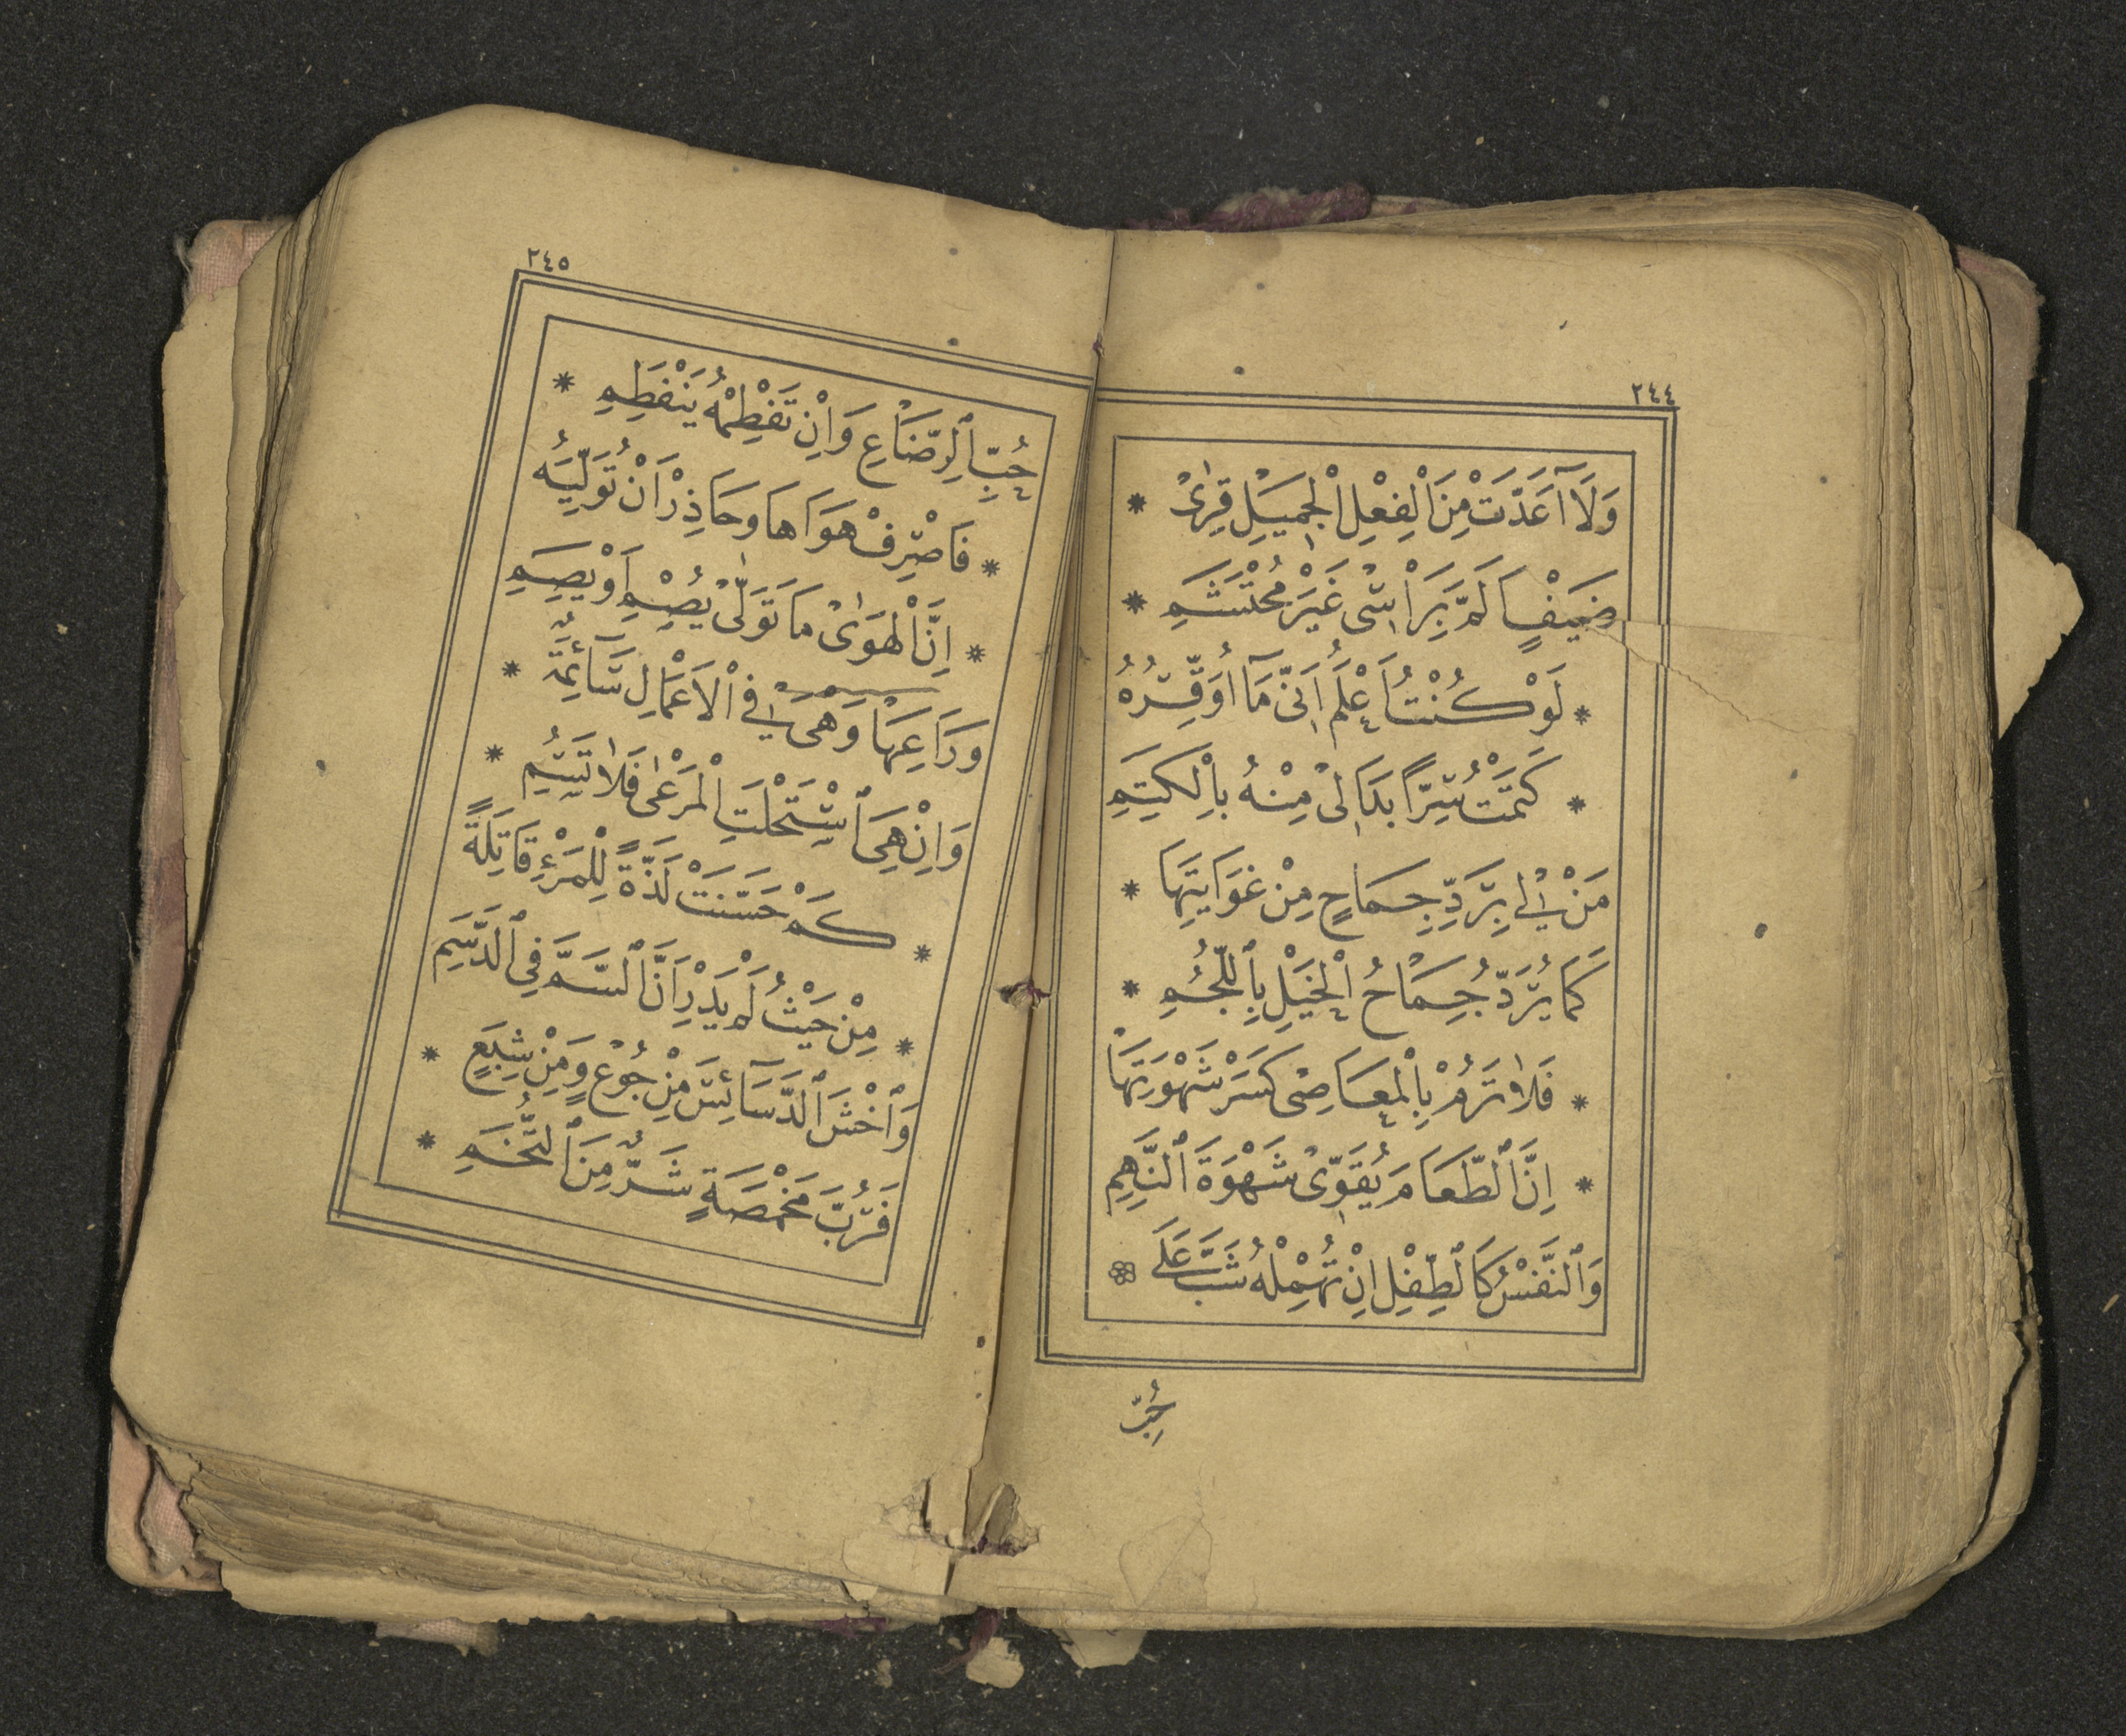 ٢٤٤
وَلَا آعَدَّتْ مِنَ الْفِعْلِ الْجَمِيلِ قِرٰى *
ضَيْفٍ اَلَمَّ بِرَاْسِى غَيْرَ مُحْتَشَمِ *
* لَوْ كُنْتُ اَعْلَمُ اَنّى مَا اُوَقِّرُهُ
* كَتَمْتُ سِرًّا بَدَا لِى مِنْهُ بِالْكَتَمِ
مَنْ لِى بِرَدِّ جِمَاحٍ مِنْ غَوَايَتِهَا *
كَمَا يُرَدُّ جِمَاحُ الْخَيْلِ بِاللُّجُمِ *
* فَلَا تَرُمْ بِالْمَعَاصِى كَسْرَ شَهْوَتِهَا
* اِنَّ الطَّعَامَ يُقَوِّى شَهْوَةَ النَّهِمِ
وَالنَّفْسُ كَالطِّفْلِ اِنْ تُهْمِلْهُ شَبَّ عَلَى
حُبِّ
٢٤٥
حُبِّ الرِّضَاعِ وَاِنْ تَفْطِمْهُ يَنْفَطِمِ *
* فَاصْرِفْ هَوَاهَا وَحَاذِرْ اَنْ تُوَلِّيَهُ
* اِنَّ الْهَوٰى مَا تَوَلّٰى يُصْمِ اَوْ يَصِمِ
وَرَاعِهَا وَهْىَ فِى الْاَعْمَالِ سَائِمَةٌ *
وَاِنْ هِىَ اسْتَحْلَتِ الْمَرْعٰى فَلَا تُسِمِ *
* كَمْ حَسَّنَتْ لَذَّةً لِلْمَرْءِ قَاتِلَةً
* مِنْ حَيْثُ لَمْ يَدْرِ اَنَّ السَّمَّ فِى الدَّسَمِ
وَاخْشَ الدَّسَائِسَ مِنْ جُوعٍ وَمِنْ شِبَعٍ *
فَرُبَّ مَخْمَصَةٍ شَرٌّ مِنَ التُّخَمِ *